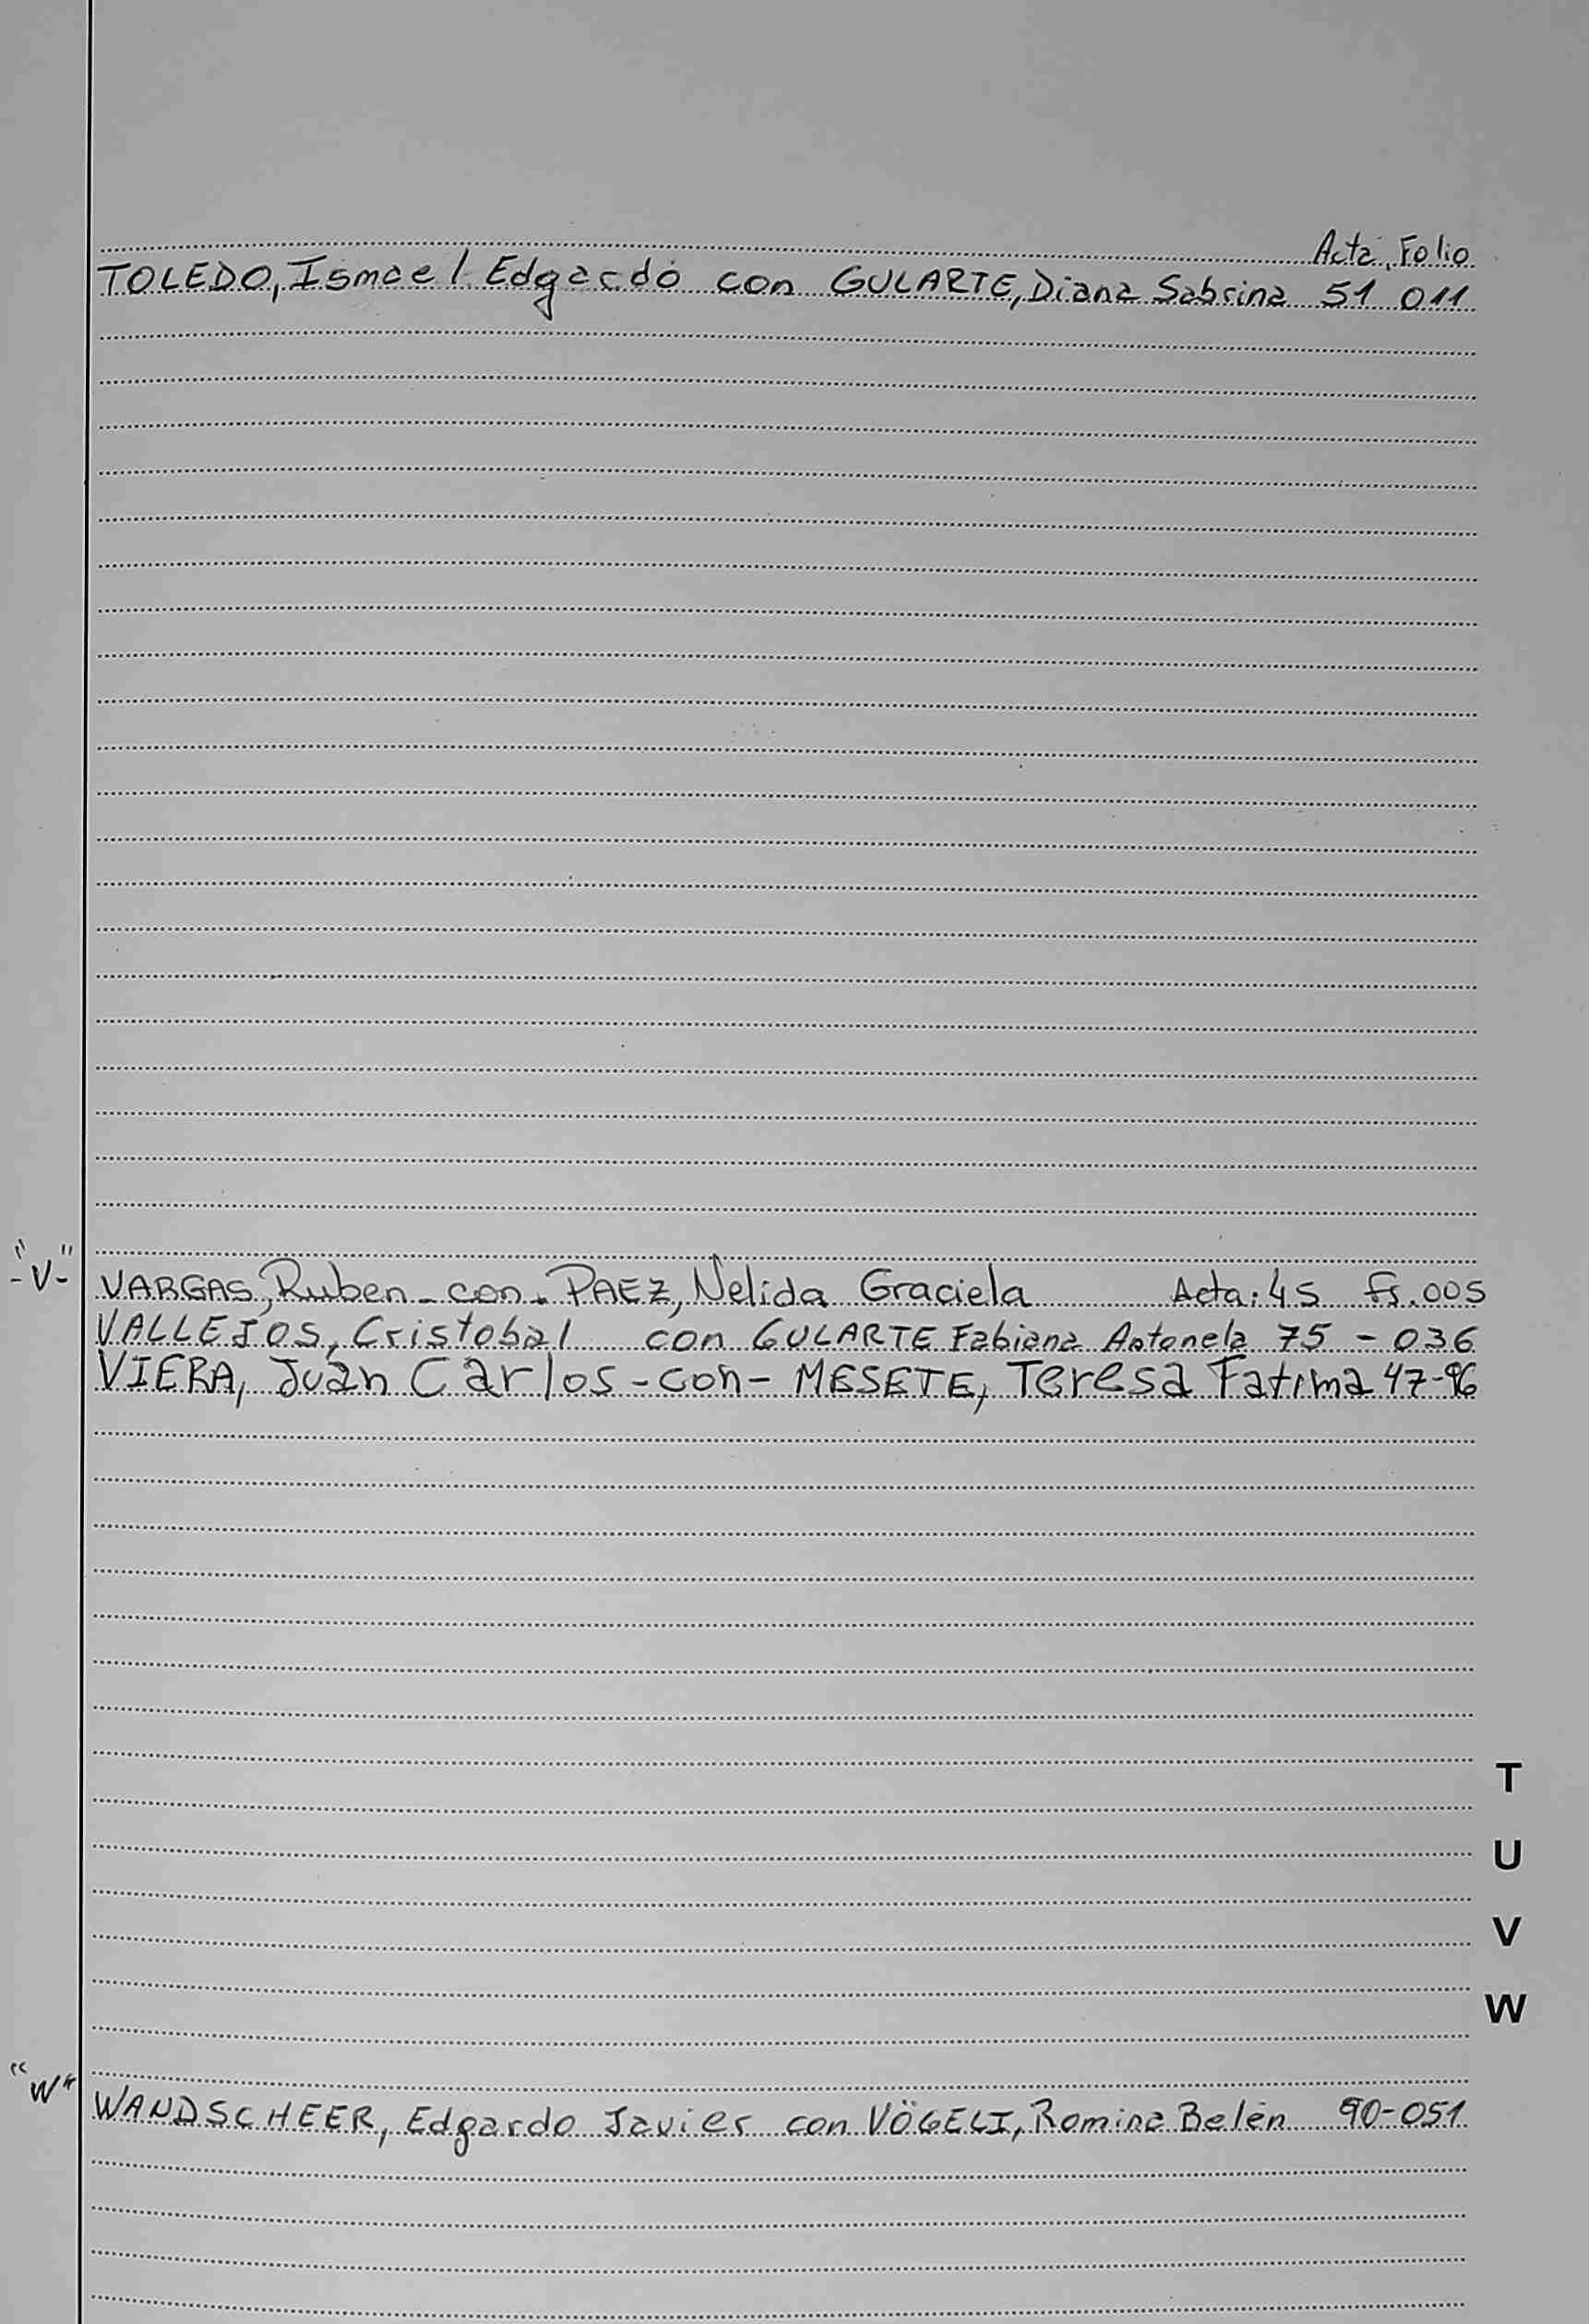 Acta, Folio
TOLEDO, Ismael Edgardo con GULARTE, Diana Sabrina 51 011
"-V-"
VARGAS, Ruben - con - PAEZ, Nelida Graciela Acta: 45 Fs. 005
VALLEJOS, Cristobal con GULARTE Fabiana Antonela 75 - 036
VIERA, Juan Carlos - con - MESETE, Teresa Fatima 47-96
T
U
V
W
"W"
WANDSCHEER, Edgardo Javier con VÖGELI, Romina Belén 90-051